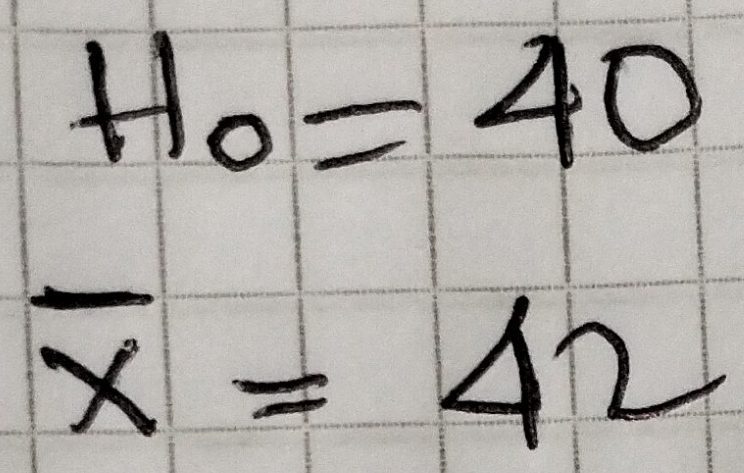 H₀ = 40
x̄ = 42